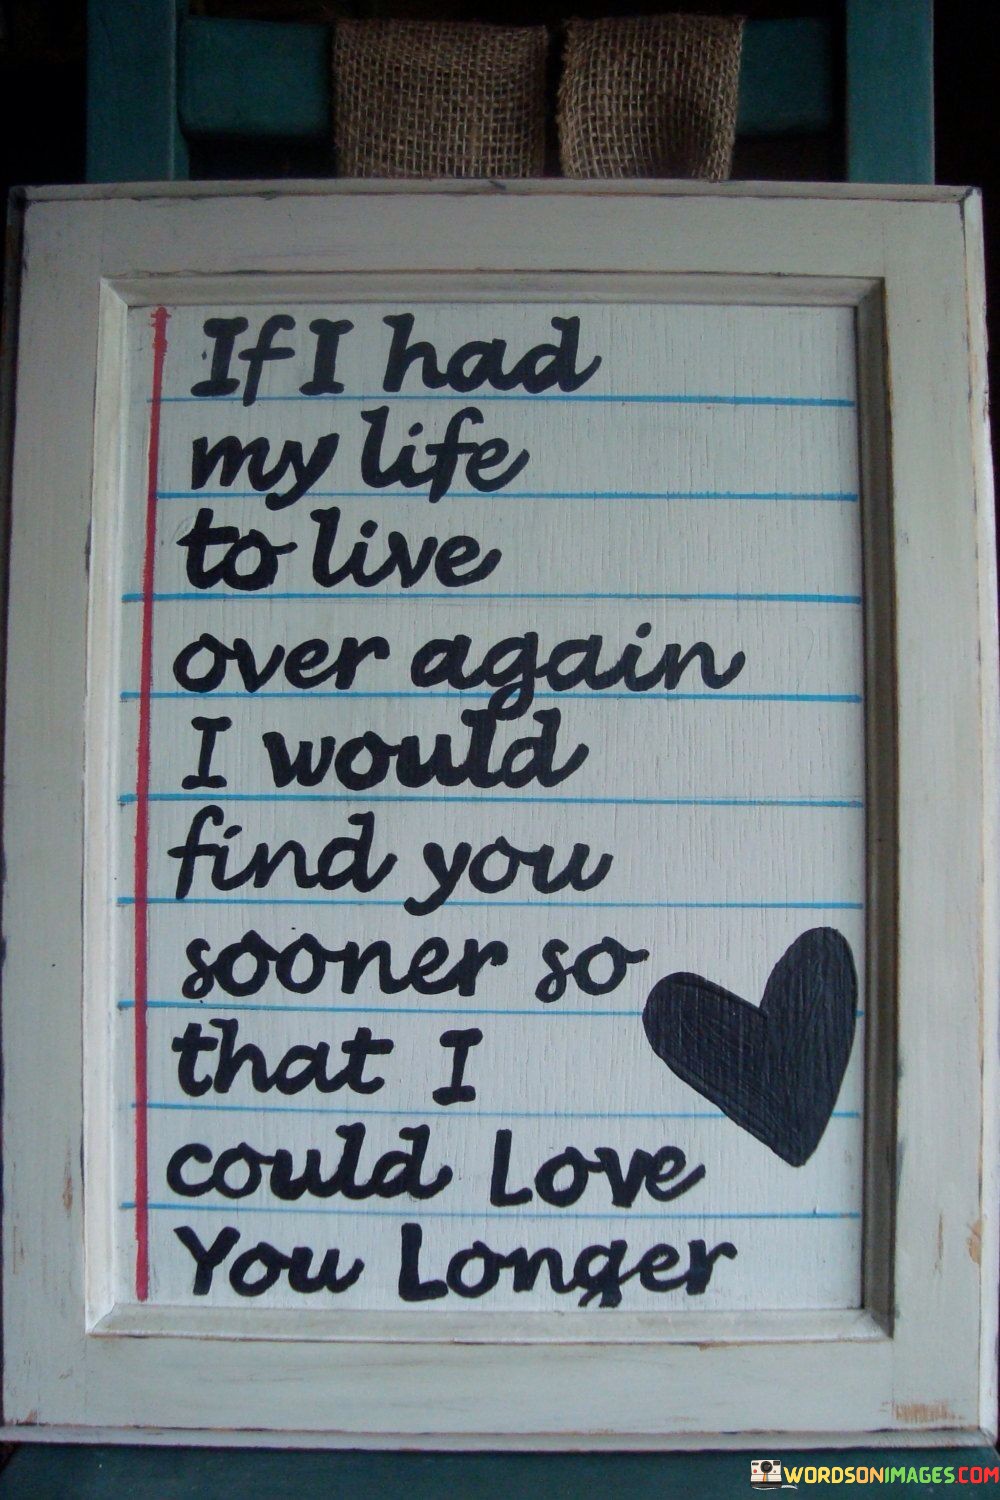 If I had
my life
to live
over again
I would
find you
sooner so
that I
could Love
You Longer
WORDSONIMAGES.COM